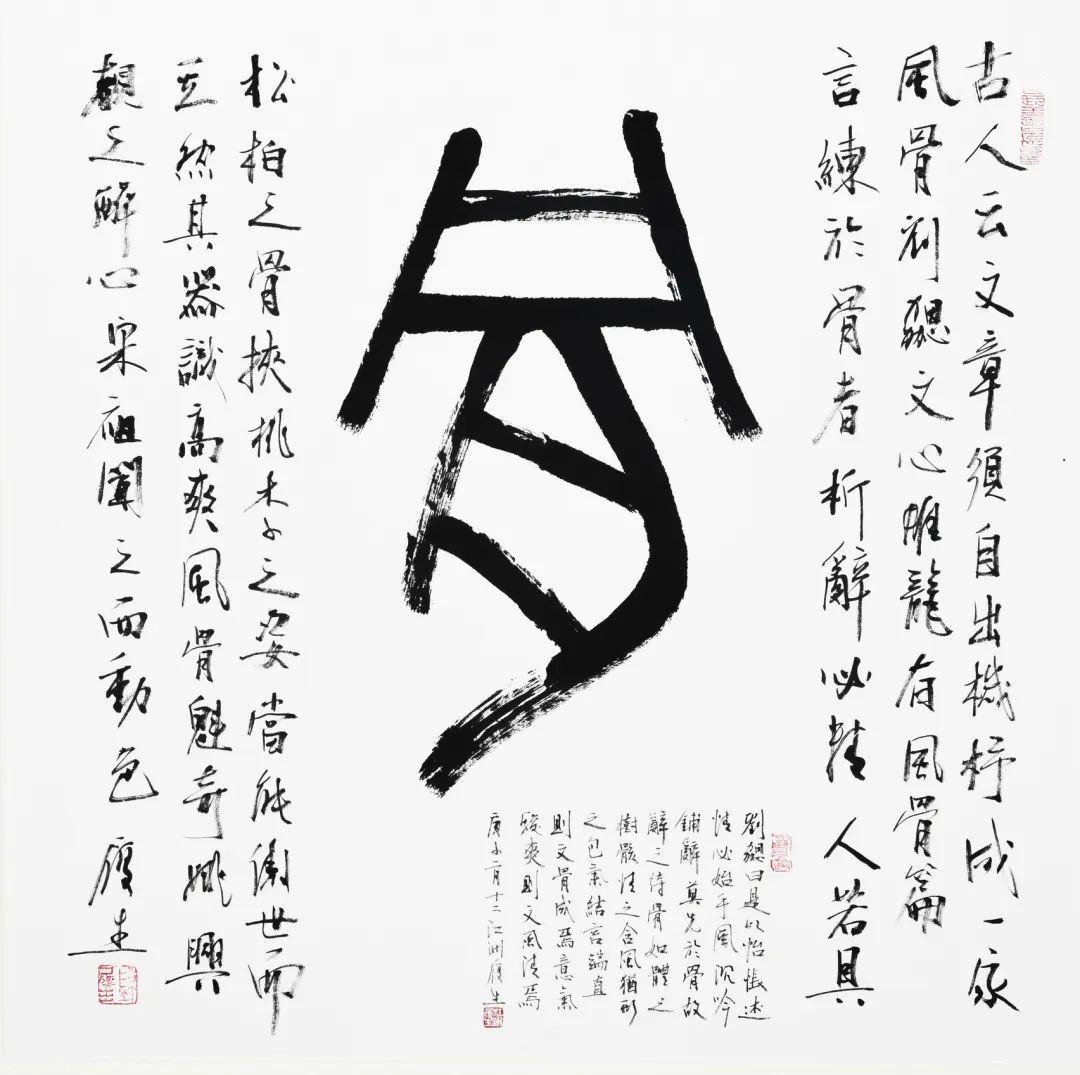 古人云文章須自出機杼成一家
風骨劉勰文心雕龍有風骨篇
言練於骨者析辭必精人若具
劉勰曰是以怊悵述
情必始乎風沉吟
鋪辭莫先於骨故
辭之待骨如體之
樹骸情之含風猶形
之包氣結言端直
則文骨成焉意氣
駿爽則文風清焉
庚子二月十二江洲履生
松柏之骨挾桃李之姿當能傲世而
然其器識高爽風骨魁奇姚興
觀之醉心宋祖聞之而動色履生